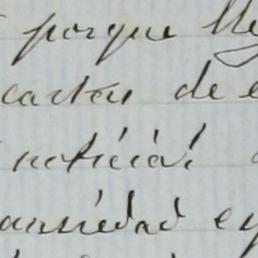 porque lle
cartas de e
noticias
ansiedad ey